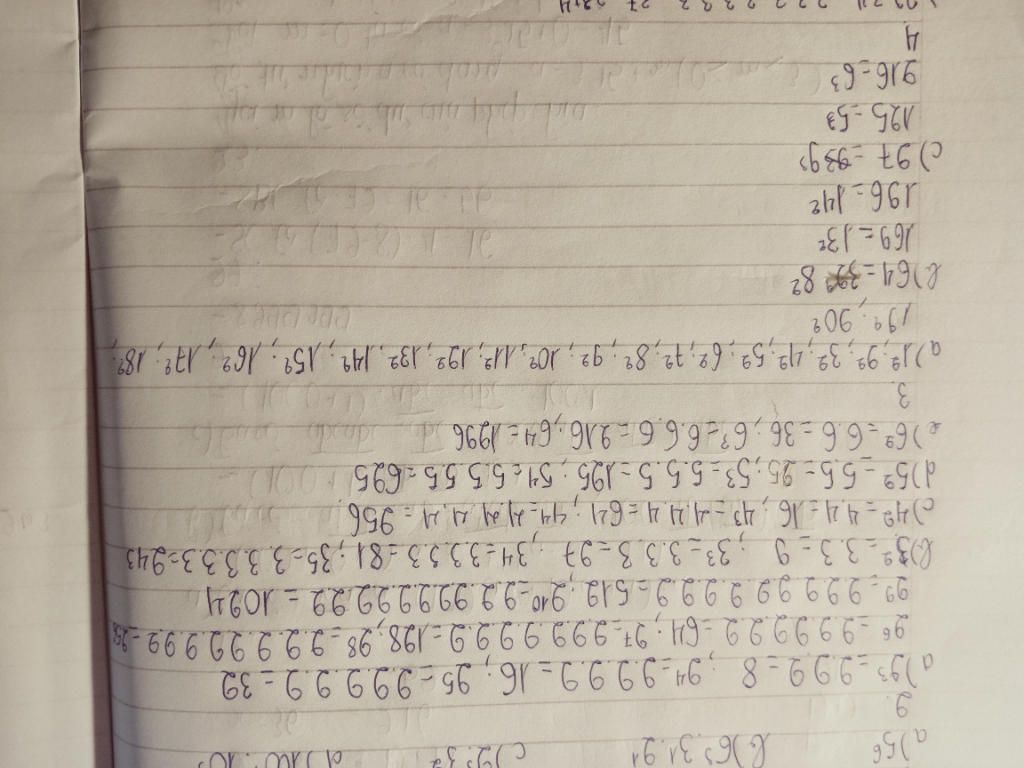 a) 5⁶ b) 6⁵.3¹.2¹ c) 2³.3²
2.
a) 2³=2.2.2=8 ; 2⁴=2.2.2.2=16 ; 2⁵=2.2.2.2.2=32
2⁶=2.2.2.2.2.2=64 ; 2⁷=2.2.2.2.2.2.2=128 ; 2⁸=2.2.2.2.2.2.2.2=256
2⁹=2.2.2.2.2.2.2.2.2=512 ; 2¹⁰=2.2.2.2.2.2.2.2.2.2=1024
b) 3²=3.3=9 ; 3³=3.3.3=27 ; 3⁴=3.3.3.3=81 ; 3⁵=3.3.3.3.3=243
c) 4²=4.4=16 ; 4³=4.4.4=64 ; 4⁴=4.4.4.4=256
d) 5²=5.5=25 ; 5³=5.5.5=125 ; 5⁴=5.5.5.5=625
e) 6²=6.6=36 ; 6³=6.6.6=216 ; 6⁴=1296
3.
a) 1²; 2²; 3²; 4²; 5²; 6²; 7²; 8²; 9²; 10²; 11²; 12²; 13²; 14²; 15²; 16²; 17²; 18²;
19²; 20²
b) 64=8²
169=13²
196=14²
c) 27=3³
125=5³
216=6³
4